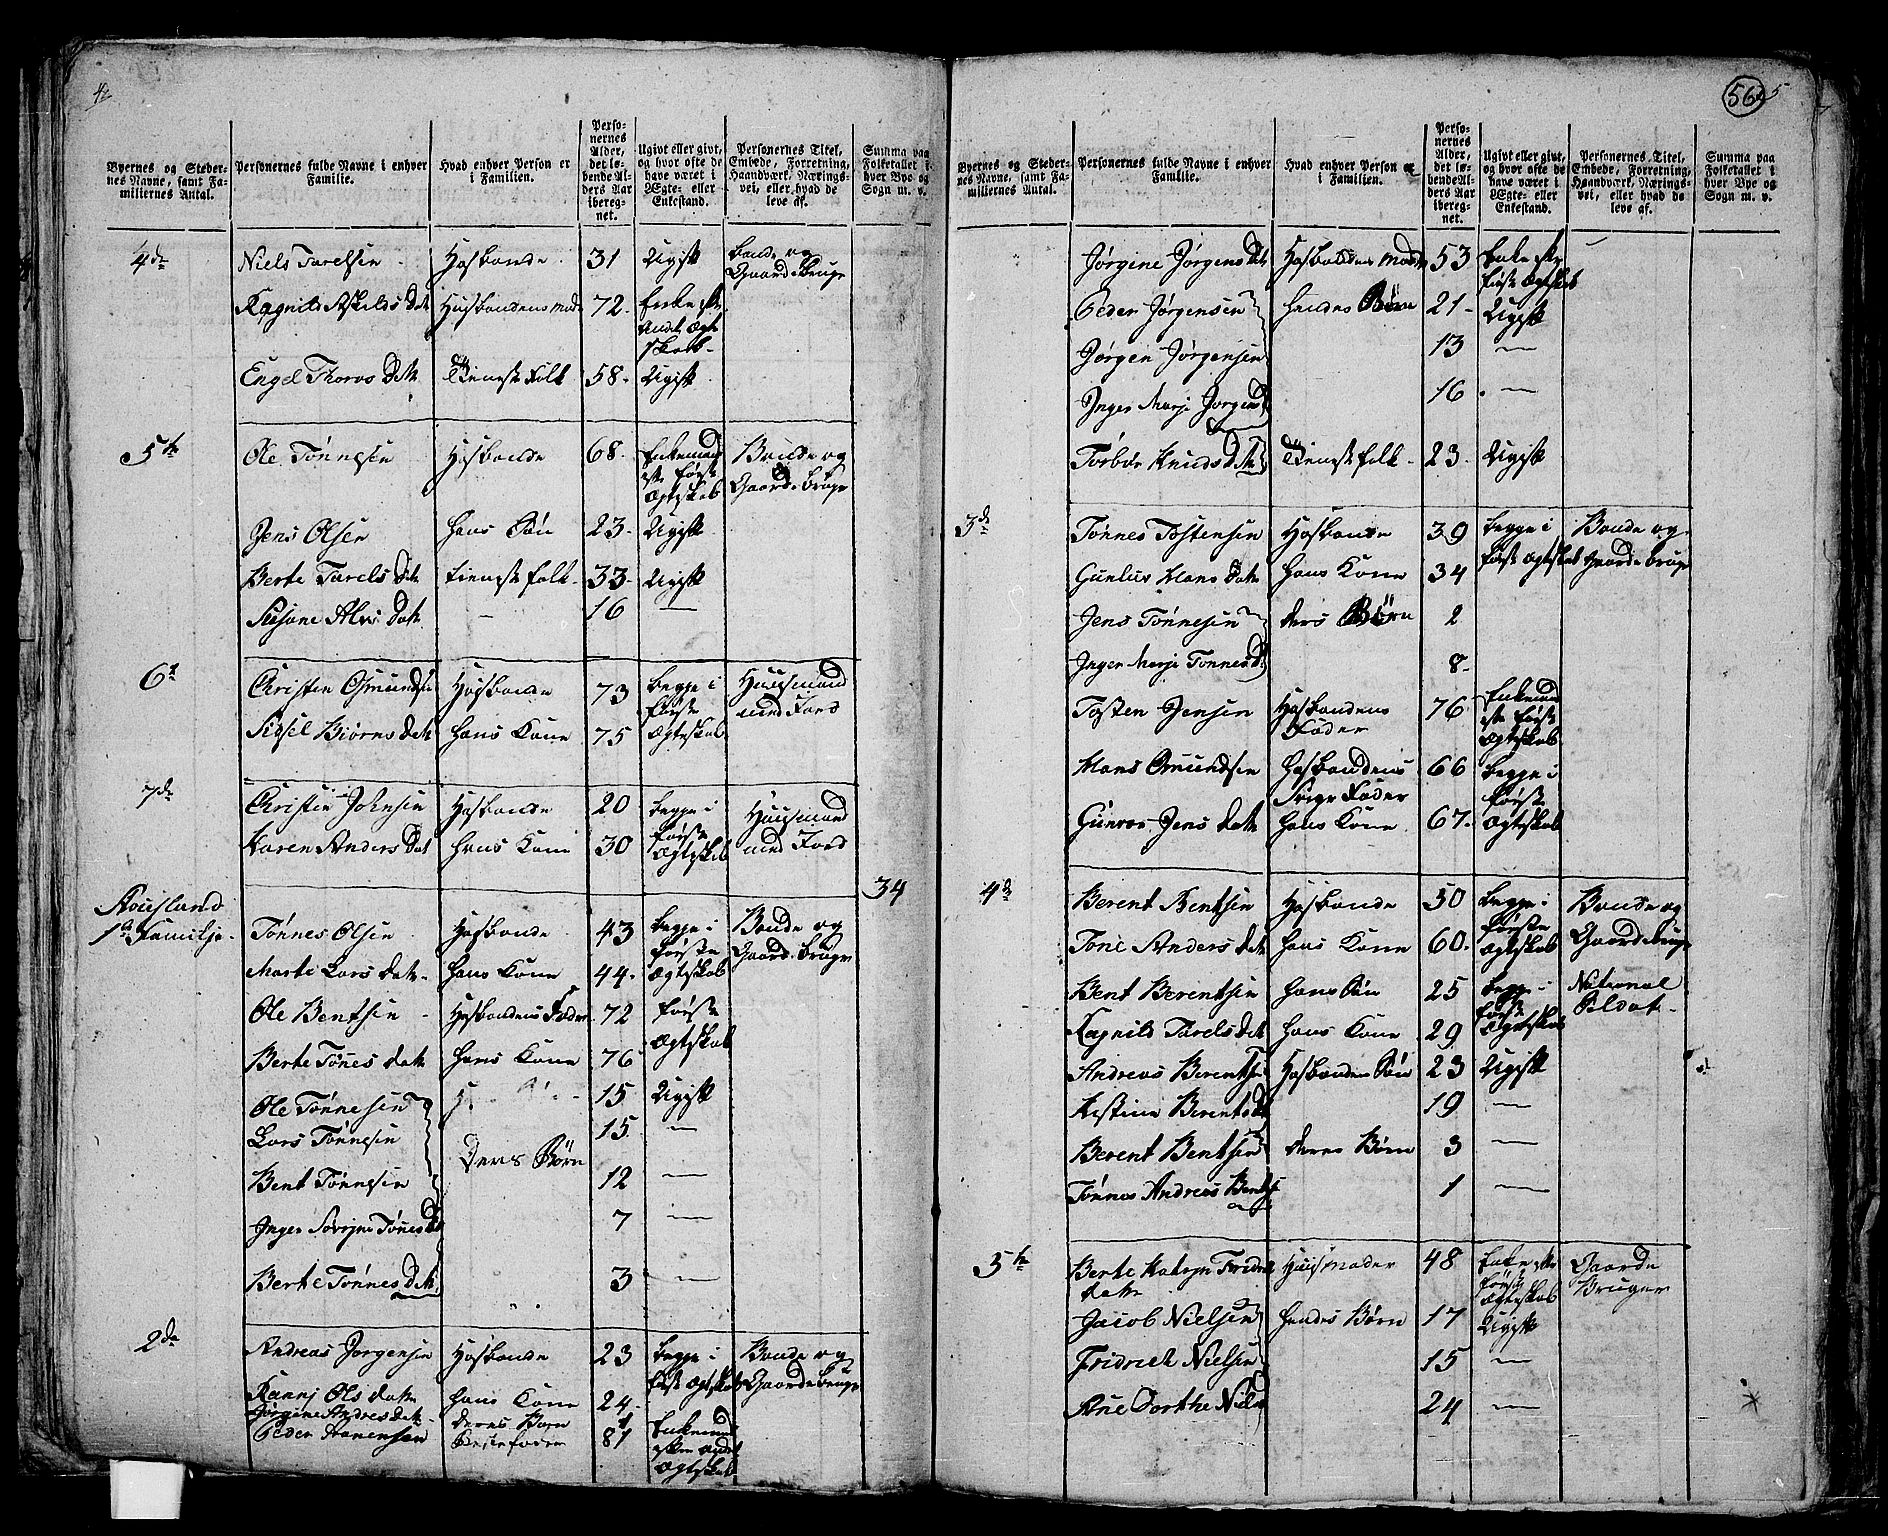 4
Byernes og Steder-
nes Navne, samt Fa-
miliernes Antal.
Personernes fulde Navne i enhver
Familie.
Hvad enhver Person er
i Familien.
Perso-
nernes
Alder,
det lø-
bende Al-
ders Aar
ibereg-
net.
Ugivt eller givt,
og hvor ofte de
have været i
Ægte- eller
Enkestand.
Personernes Titel,
Embede, Forretning,
Haandværk, Nærings-
vei, eller hvad de
leve af.
Summa paa
Folketallet i
hver Bye og
Sogn m. v.
4de Niels Tarelsen Hosbonde 31 Ugift Bonde og
Gaardebruger
Ragnild Askelds Datr Husbondens Moder 72 Enke efter
Andet Ægte
skab
Engel Thores Datr Tieneste Folk 58 Ugift
5te Ole Tønnesen Hosbonde 68 Enkemand Bonde og
efter første Gaardebruger
Ægteskab
Jens Olsen hans Søn 23 Ugift
Berte Tarels Datr tieneste folk 33 Ugift
Susane Alvs Datr — 16 —
6te Christen Osmundsen Hosbonde 73 begge i Huusmand
første med Jord
Sidsel Biørns Datr hans Kone 75 Ægteskab
7de Christen Johnsen Hosbonde 20 begge i Huusmand
første med Jord
Karen Anders Dat hans Kone 30 Ægteskab
34
1te Familje
Tønnes Olsen Hosbonde 43 begge i Bonde og
første Gaardebruger
Marte Lars datr hans Kone 44 Ægteskab
Ole Bentsen Hosbondens Fader 72 første
Ægteskab
Berte Tønes datr hans Kone 76
Ole Tønnesen 15 Ugift
Lars Tønnesen 15 —
Deres Børn
Bent Tønnesen 12 —
Inger Tønes D 7 —
Berte Tønnes datr 3 —
2den Andreas Jørgensen Hosbonde 23 begge i Bonde og
første Ægteskab Gaardebruger
Ols datr hans Kone 24
Jørgine Andreas datr deres Barn 1
Peder Hanensen Bestefader 81 Enkemand
efter andet
Ægteskab
56
5
Byernes og Steder-
nes Navne, samt Fa-
miliernes Antal.
Personernes fulde Navne i enhver
Familie.
Hvad enhver Person er
i Familien.
Perso-
nernes
Alder,
det lø-
bende Al-
ders Aar
ibereg-
net.
Ugivt eller givt,
og hvor ofte de
have været i
Ægte- eller
Enkestand.
Personernes Titel,
Embede, Forretning,
Haandværk, Nærings-
vei, eller hvad de
leve af.
Summa paa
Folketallet i
hver Bye og
Sogn m. v.
Jørgine Jørgens Datr Hosbondens Moder 53 Enke efter —
første Ægteskab
Peder Jørgensen hendes Børn 21 Ugift
Jørgen Jørgensen 13 —
Inger Marje Jørgensd 16 —
Torbor Knuds Datr Tieneste folk 23 Ugift
3de Tønnes Tostensen Hosbonde 39 begge i Bonde og
første Ægteskab Gaardebruger
Gunlus Hans Datr hans Kone 34
Jens Tønnesen deres Børn 2
Inger Marje Tønnes D 8
Tosten Jensen Hosbondens 76 Enkemand
Fader efter første
Ægteskab
Hans Omundsen Hosbondens 66 begge i
Sviger Fader første
Gunvor Jens datr hans Kone 67 Ægteskab
4de Berent Bentsen Hosbonde 50 begge i Bonde og
første Gaardebruger
Tone Anders datr hans Kone 60 Ægteskab
Bent Berentsen hans Søn 25 begge i National
første Soldat
Ragnild Tarels datr hans Kone 29 Ægteskab
Andreas Berentsen Hosbonden Søn 23 Ugift
Kistine Berents D 19 —
Berent Bentsen deres Børn 3 —
Tønnes Andreas Bentsen 1 —
5te Berte Katrin Fridrich Huusmoder 48 Enke efter Gaarde
datr første Bruger
Ægteskab
Jacob Nielsen hendes Børn 17 Ugift
Fridrich Nielsen 15 —
Ane Dorthe Niels D 24 —